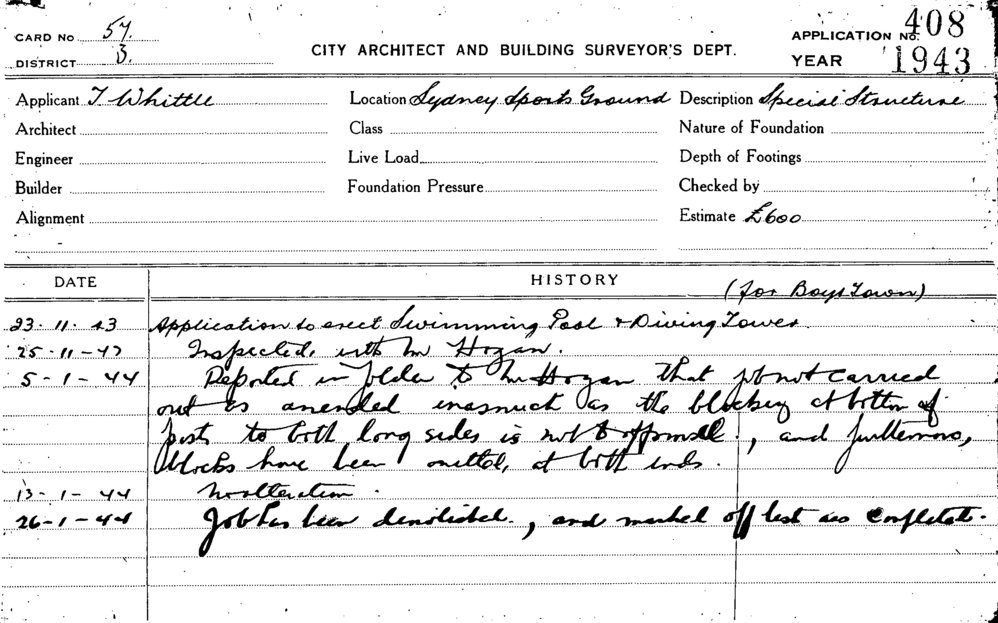 CARD No 57.
DISTRICT 3.
CITY ARCHITECT AND BUILDING SURVEYOR'S DEPT.
APPLICATION No. 408
YEAR 1943
Applicant T Whittle
Location Sydney Sports Ground
Description Special Structure
Architect
Class
Nature of Foundation
Engineer
Live Load
Depth of Footings
Builder
Foundation Pressure
Checked by
Alignment
Estimate £600
DATE
HISTORY
(for Boys Town)
23-11-43 Application to erect Swimming Pool & Diving Tower.
25-11-43 Inspected, with Mr Hogan.
5-1-44 Reported in folder to Mr Hogan that job not carried
out as amended inasmuch as the blocking at bottom of
posts to both long sides is not to approval, and furthermore,
blocks have been omitted, at both ends.
13-1-44 No alteration.
26-1-44 Job has been demolished, and marked off list as complete.